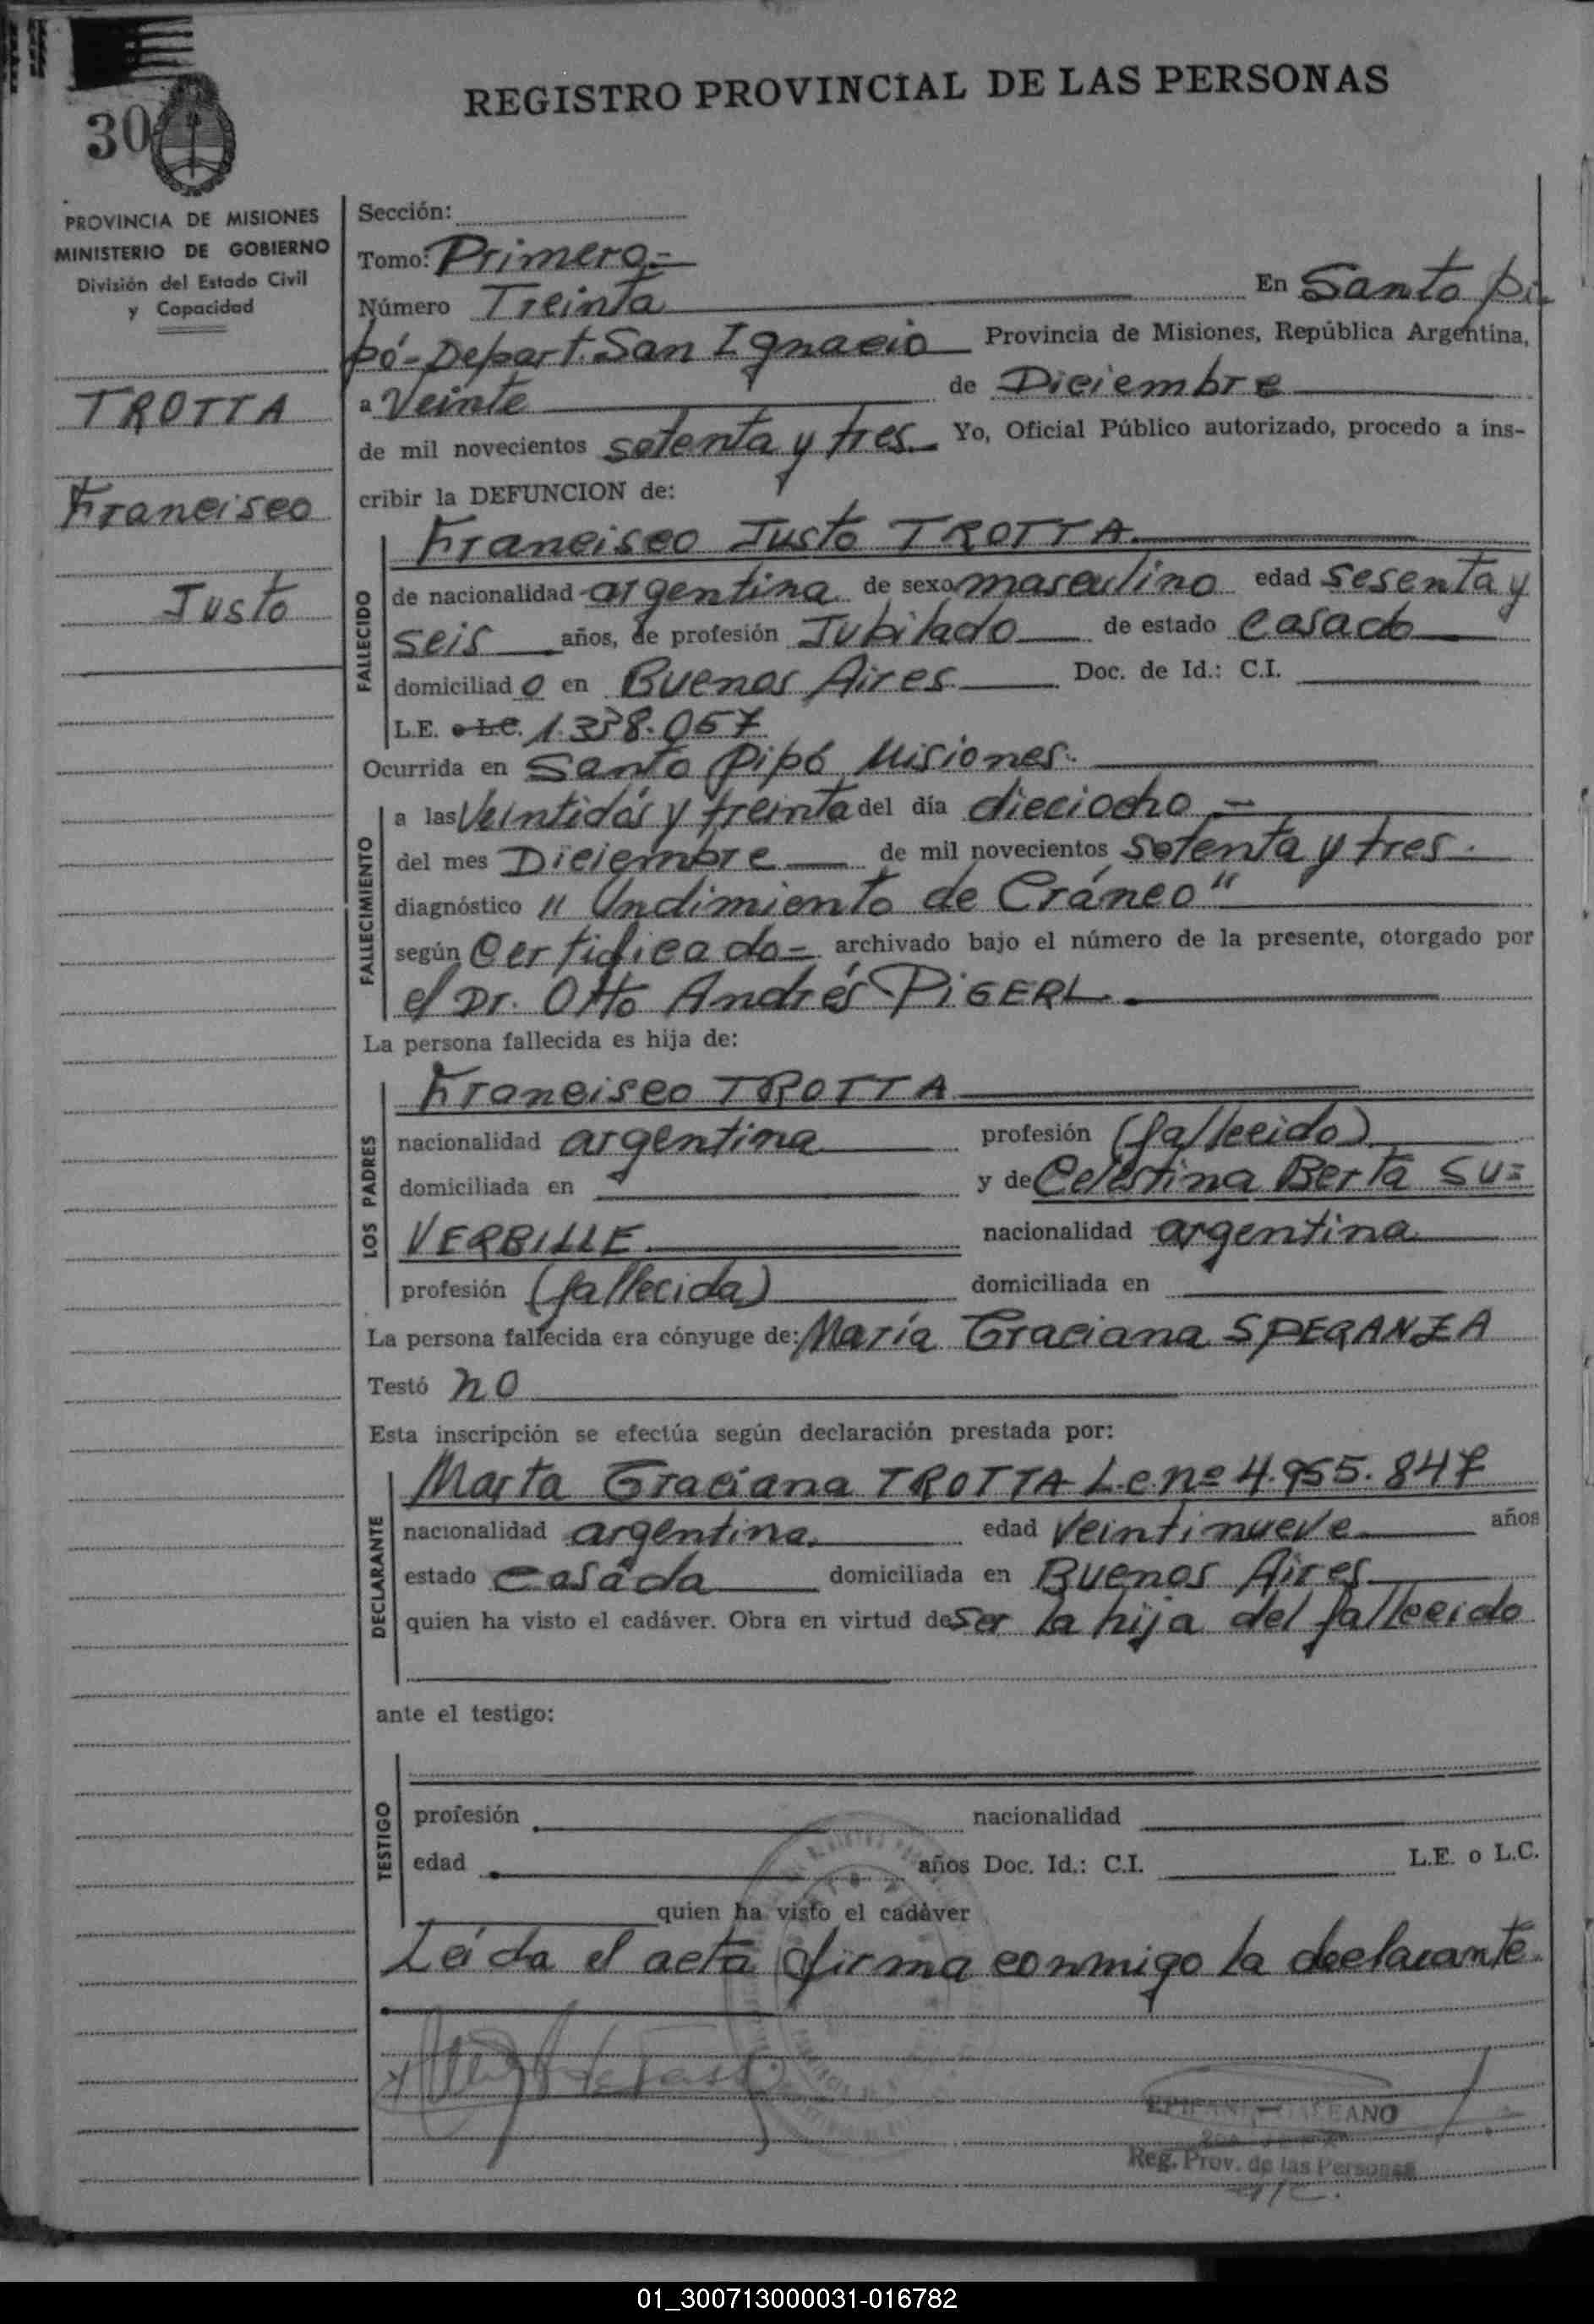 REGISTRO PROVINCIAL DE LAS PERSONAS
30
PROVINCIA DE MISIONES
MINISTERIO DE GOBIERNO
División del Estado Civil
y Capacidad
TROTTA
Francisco
Justo
Sección:
Tomo: Primero.=
Número Treinta En Santo Pi
pó-Depart. San Ignacio Provincia de Misiones, República Argentina,
a Veinte de Diciembre
de mil novecientos setenta y tres Yo, Oficial Público autorizado, procedo a ins-
cribir la DEFUNCION de:
FALLECIDO
Francisco Justo TROTTA
de nacionalidad argentina de sexo masculino edad sesenta y
seis años, de profesión Jubilado de estado casado
domiciliado en Buenos Aires Doc. de Id.: C.I.
L.E. o L.C. 1.338.057
Ocurrida en Santo Pipó Misiones.
FALLECIMIENTO
a las Veintidós y treinta del día dieciocho
del mes Diciembre de mil novecientos setenta y tres.
diagnóstico "Undimiento de Cráneo"
según Certificado= archivado bajo el número de la presente, otorgado por
el Dr. Otto Andrés PiGERL.
La persona fallecida es hija de:
LOS PADRES
Francisco TROTTA
nacionalidad argentina profesión (fallecido)
domiciliada en y de Celestina Berta SU=
VERBILLE nacionalidad argentina
profesión (fallecida) domiciliada en
La persona fallecida era cónyuge de: María Graciana SPERANZA
Testó no
Esta inscripción se efectúa según declaración prestada por:
DECLARANTE
Marta Graciana TROTTA L.C. nº 4.955.847
nacionalidad argentina. edad veintinueve años
estado casada domiciliada en Buenos Aires
quien ha visto el cadáver. Obra en virtud de Ser la hija del fallecido
ante el testigo:
TESTIGO
profesión nacionalidad
edad años Doc. Id.: C.I. L.E. o L.C.
quien ha visto el cadáver
Leída el acta firma conmigo la declarante.
Reg. Prov. de las Personas
01_300713000031-016782